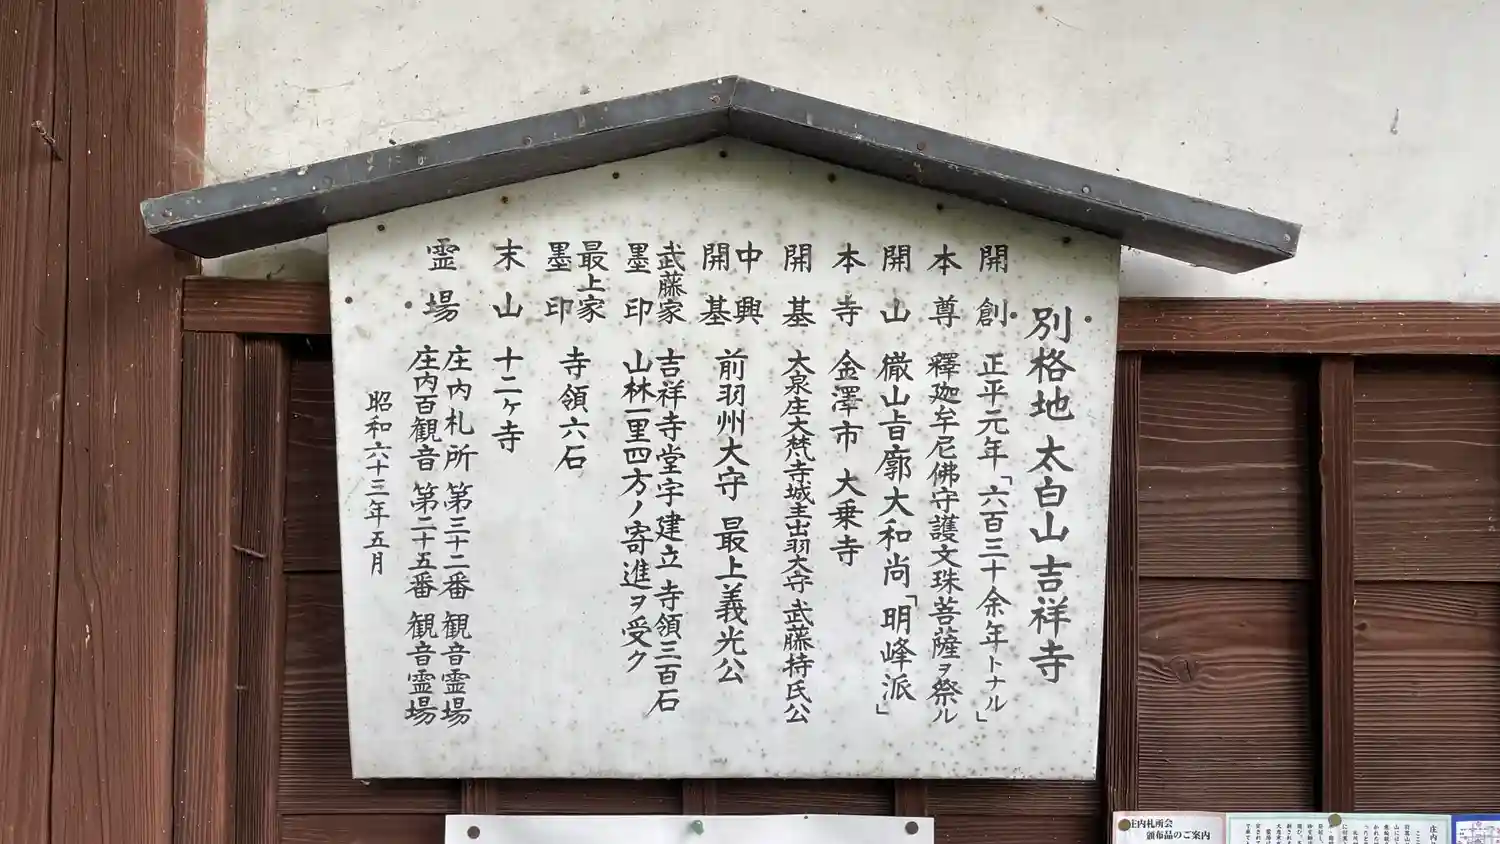 別格地 太白山 吉祥寺
開創 正平元年「六百三十余年トナル」
本尊 釋迦牟尼佛守護文珠菩薩ヲ祭ル
開山 山旨廓大和尚「明峰派」
本寺 金澤市 大乗寺
開基 大泉庄大梵寺城主出羽大守 武藤持氏公
中興開基 前羽州大守 最上義光公
武藤家墨印 吉祥寺堂宇建立 寺領三百石
山林一里四方ノ寄進ヲ受ク
最上家墨印 寺領六石
末山 十二ヶ寺
霊場 庄内札所 第三十二番 観音霊場
庄内百観音 第二十五番 観音霊場
昭和六十三年五月
庄内札所会
頒布品のご案内